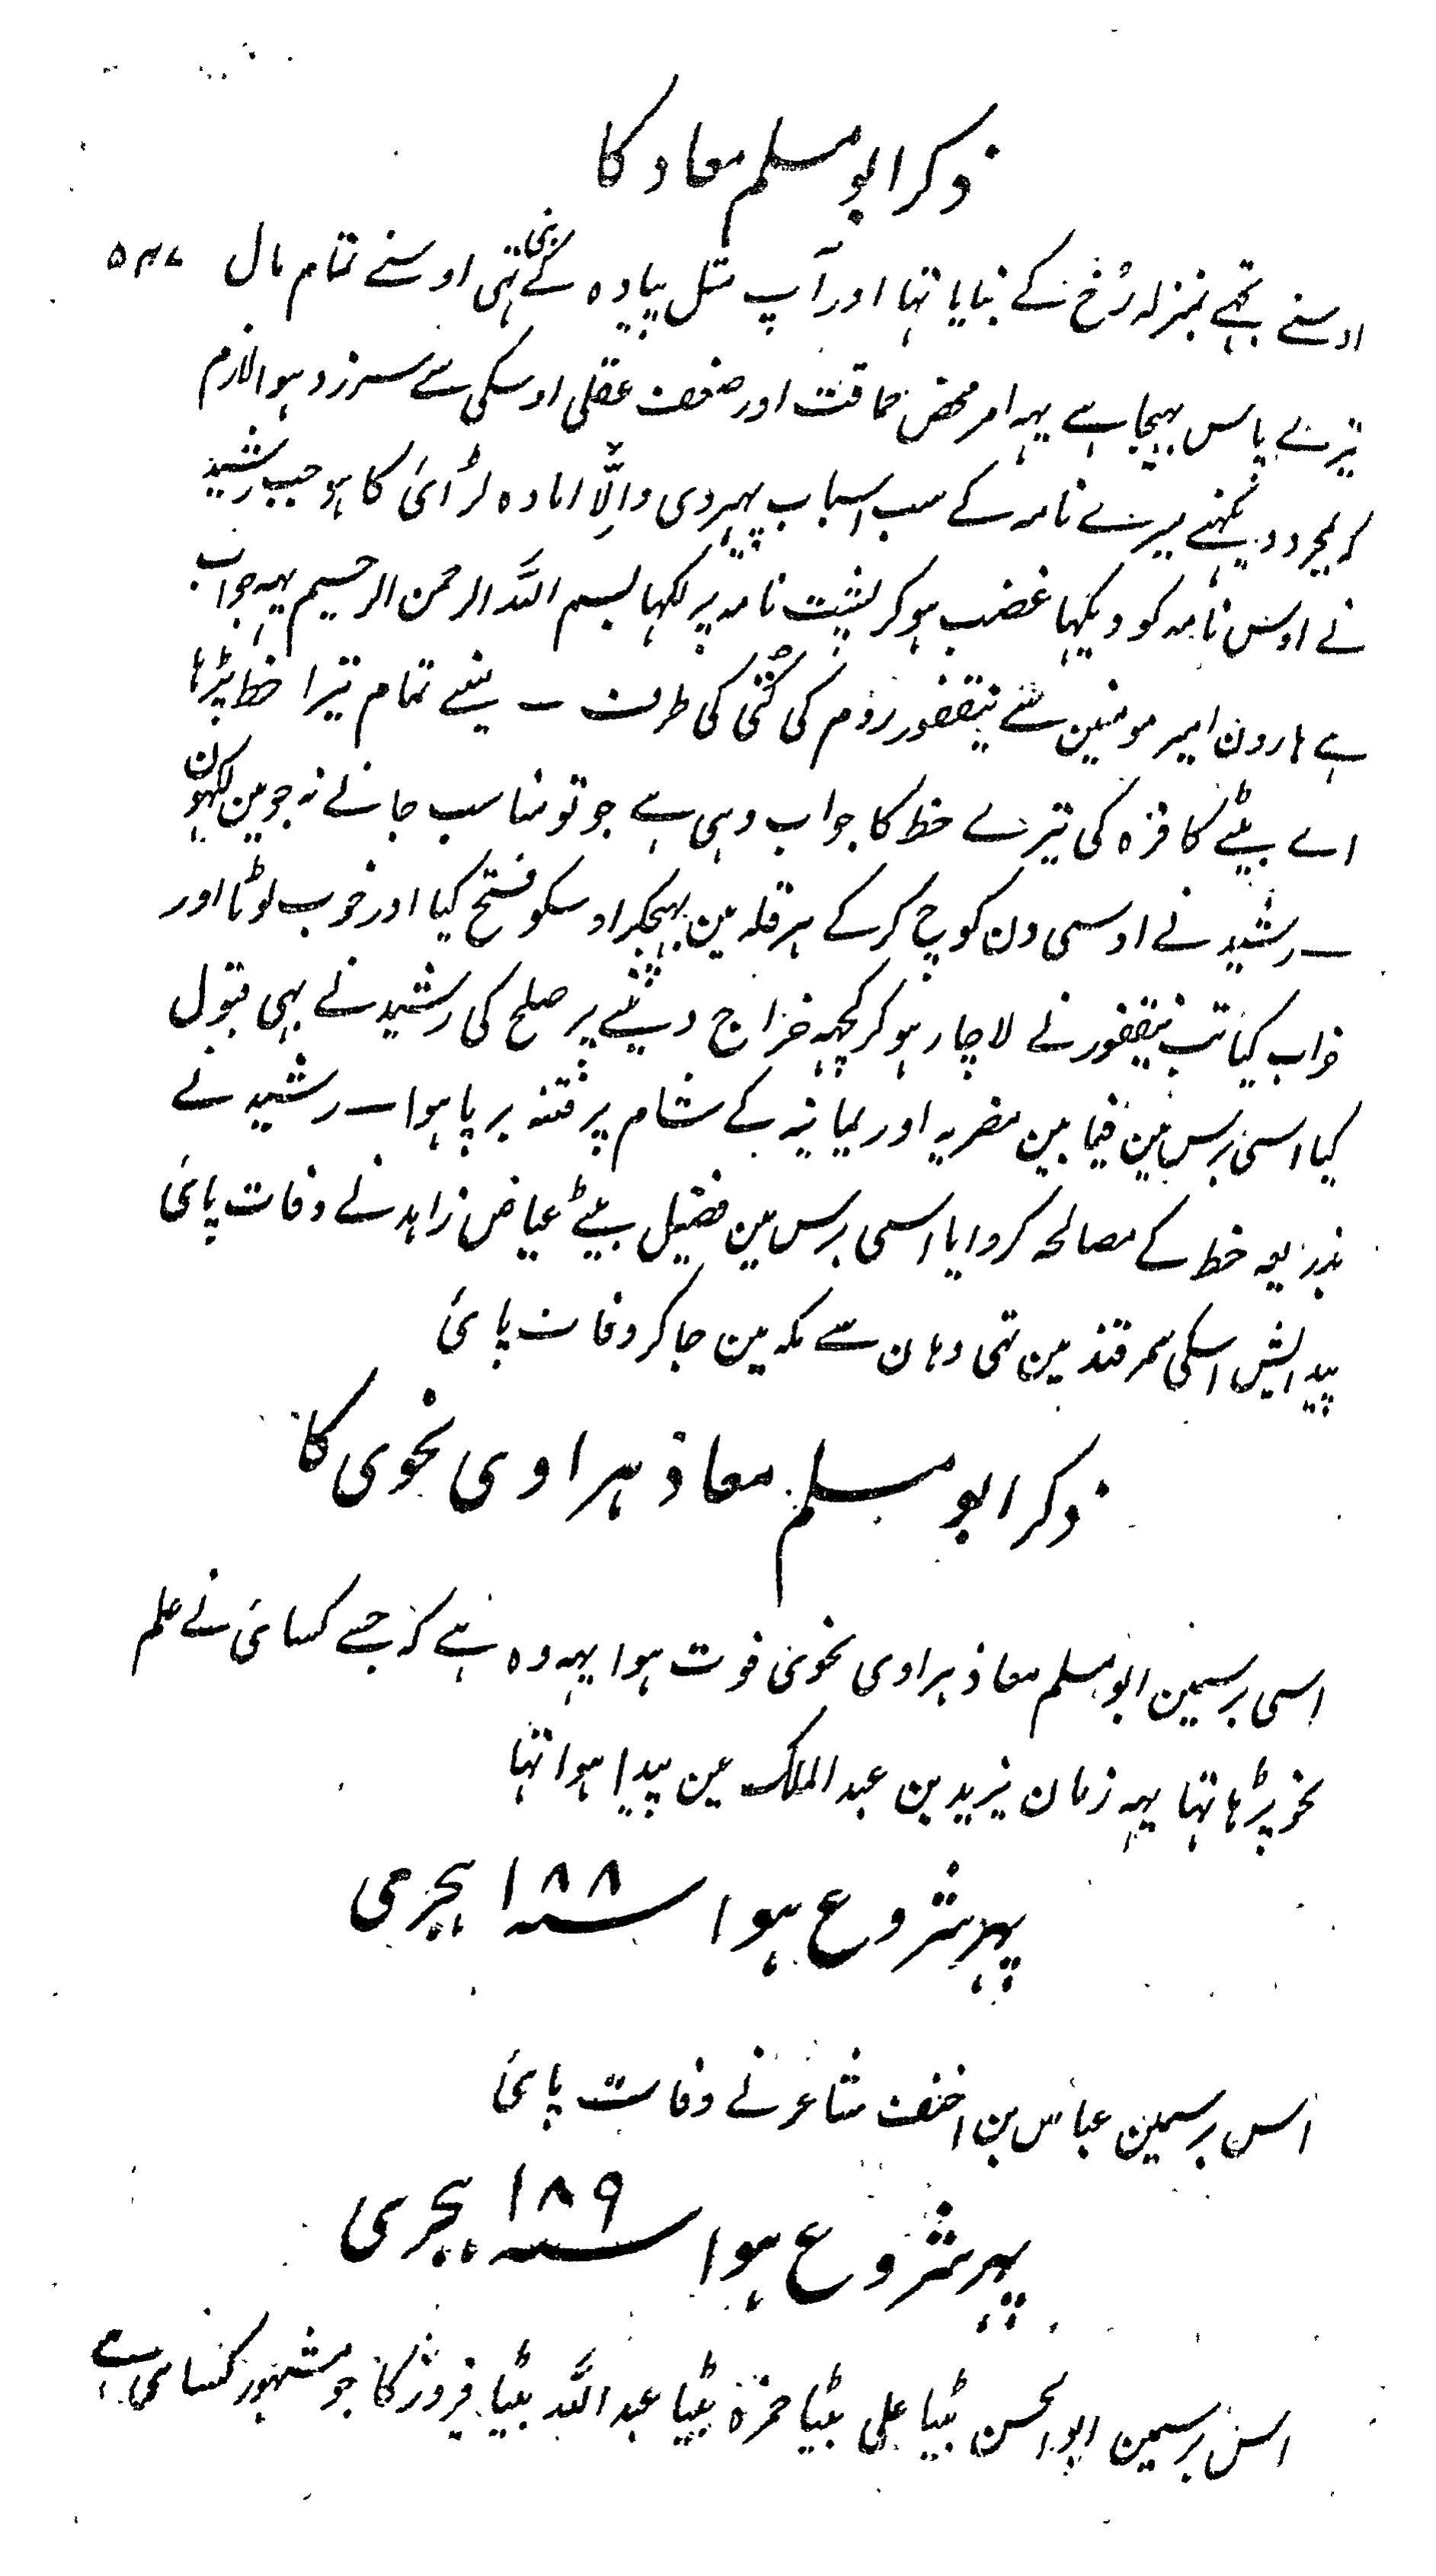 ذکر ابو مسلم معاد کا
اوسنے تجہے بمنزلہ رُخ کے بنایا تہا اور آپ مثل پیادہ کے بنی تہی اوسنے تمام مال ۵۴۷
تیرے پاس بہیجا ہے یہہ امر محض حماقت اور ضعف عقلی اوسکی سے سرزد ہوا لازم
کہ بمجرد دیکہنے میرے نامہ کے سب اسباب پہیر دی واِلّا امادہ لڑائی کا ہو جب رشید
نے اوس نامہ کو دیکہا غضب ہو کر پشت نامہ پر لکہا بسم اللہ الرحمن الرحیم یہہ جواب
ہے ہارون امیر مومنین سے نیقفور روم کی کُتّی کی طرف ـ مینے تمام تیرا خط پڑہا
اے بیٹے کافرہ کی تیرے خط کا جواب وہی ہے جو تو مناسب جانے نہ جو مین لکہون
ـ رشید نے اوسی دن کوچ کر کے ہرقلہ مین پہنچکر اوسکو فتح کیا اور خوب لوٹا اور
خراب کیا تب نیقفور نے لاچار ہو کر کچہہ خراج دینے پر صلح کی رشید نے بہی قبول
کیا اسی برس مین فیما بین مضریہ اور یمانیہ کے شام پر فتنہ برپا ہوا ـ رشید نے
بذریعہ خط کے مصالحہ کروایا اسی برس مین فضیل بیٹے عیاض زاہد نے وفات پائی
پیدایش اسکی سمرقند مین تہی وہان سے مکہ مین جا کر وفات پائی
ذکر ابو مسلم معاذ ہراوی نحوی کا
اسی برسمین ابو مسلم معاذ ہراوی نحوی فوت ہوا یہہ وہ ہے کہ جسے کسائی نے علم
نحو پڑہا تہا یہہ زمان یزید بن عبد الملک مین پیدا ہوا تہا
پہر شروع ہوا سنہ ۱۸۸ ہجری
اس برسمین عباس بن احنف شاعر نے وفات پائی
پہر شروع ہوا سنہ ۱۸۹ ہجری
اس برسمین ابو الحسن بیٹا علی بیٹا حمزہ بیٹا عبد اللہ بیٹا فیروز کا جو مشہور کسائی ہے